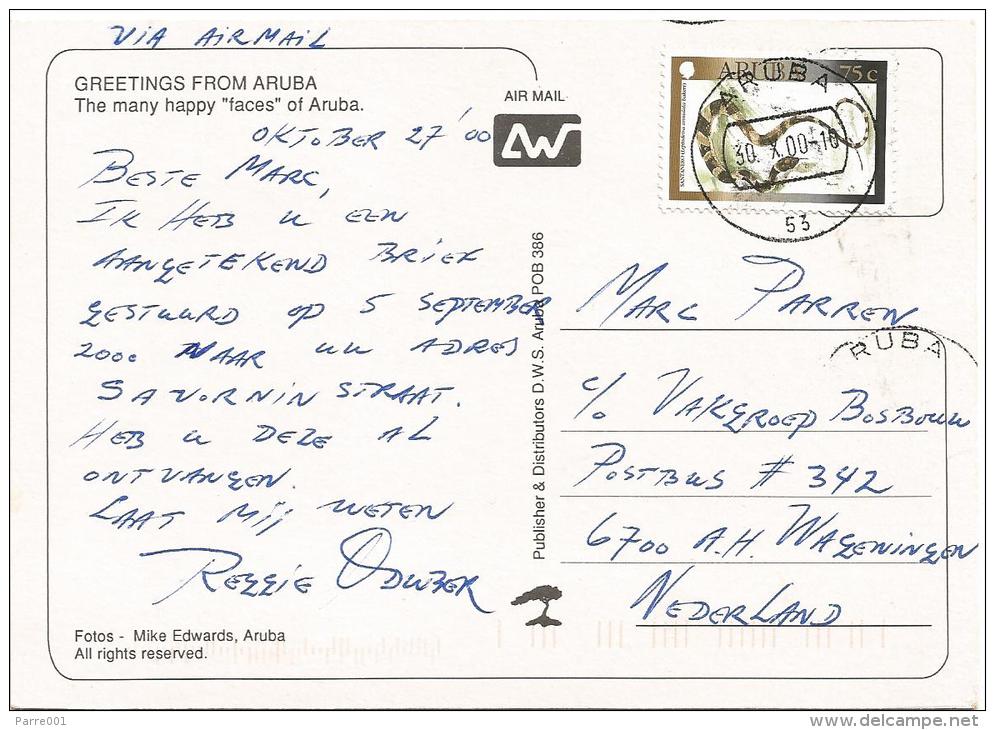 VIA AIRMAIL
GREETINGS FROM ARUBA
The many happy "faces" of Aruba.
OKTOBER 27 '00
BESTE MARC,
IK HEB U EEN
AANGETEKEND BRIEF
GESTUURD OP 5 SEPTEMBER
2000 NAAR UW ADRES
SAVORNIN STRAAT.
HEB U DEZE AL
ONTVANGEN.
LAAT MIJ WETEN
REGGIE ODUBER
Fotos - Mike Edwards, Aruba
All rights reserved.
AIR MAIL
AW
Publisher & Distributors D.W.S. Aruba POB 386
ARUBA 75c
ARUBA
30. X.00-10
53
RUBA
MARC PARREN
c/o VAKGROEP BOSBOUW
POSTBUS # 342
6700 A.H. WAGENINGEN
NEDERLAND
Parre001
www.delcampe.net